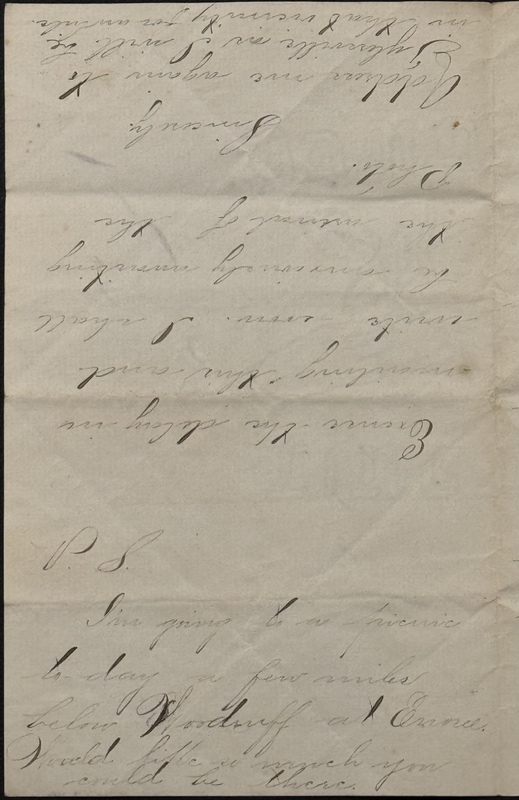 P. S.
Excuse the delay in
writing this and
write soon. I shall
be anxiously awaiting
the arrival of the
Photo.
Sincerely.
Address me again to
Tylersville as I will be
in that vicinity for awhile.
I'm going to a picnic
to-day a few miles
below Woodruff at Enoree.
Would like so much you
could be there.